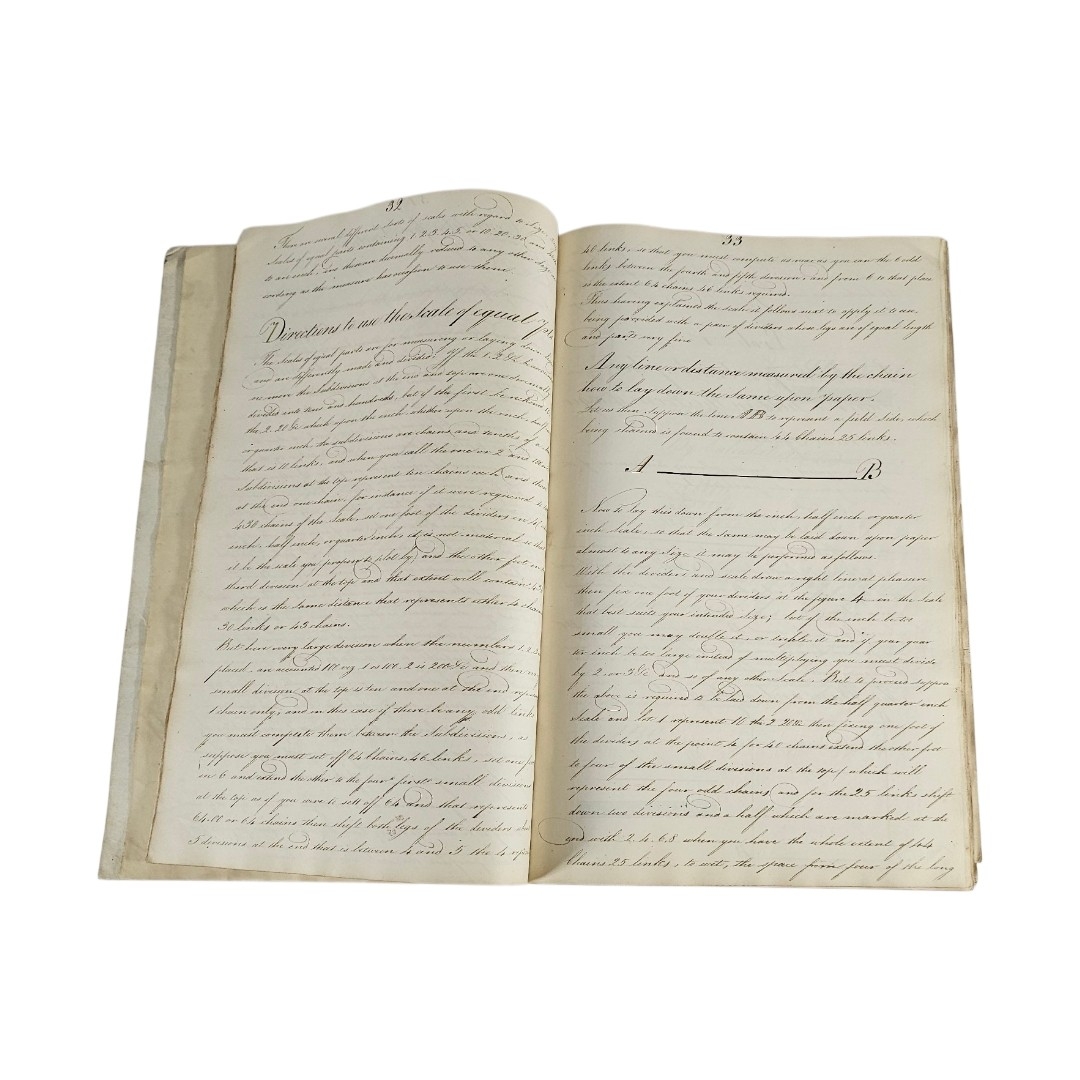 32
There are several different sorts of scales with regard to
Scales of equal parts containing 1. 2. 3. 4. 5. or 10. 20. 30. and
to an inch, are thence decimally reduced to any other
cording as the measurer has occasion to use them.
Directions to use the Scale of equal
The Scales of equal parts are for measuring or laying down
and are differently made and divided. If the 1. 2. &c
the subdivisions at the end and top are
divided into tens and hundreds, but if the first be
the 2. 20 &c which upon the inch whether upon the inch half
or quarter inch, the subdivisions are chains, and tenths of a
that is 10 links, and when you call the one 10 2
Subdivisions at the top represent ten chains each and those
at the end one chain, for instance if it were required to
4.30 chains of this Scale, set one foot of the dividers on 4
inch, half inch, or quarter inches it is not material, so that
it be the scale you propose to plot by, and the other foot on
third division at the top and that extent will contain 4.3
which is the same distance that represents either 4 chains
30 links or 43 chains.
But here every large division when the numbers 1. 2. 3
placed, are accounted 100 viz 1 is 100. 2 is 200 &c and then
small division at the top is ten and one at the end
1 chain only, and in this case if there be any odd links
you must compute them between the Subdivisions, as
suppose you must set off 64 Chains, 46 links, set one
in 6 and extend the other to the four first small divisions
at the top as if you were to sett off 64 and that represents
64.00 or 64 chains then shift both legs of the dividers
5 divisions at the end that is between 4 and 5 the 4
33
46 links, so that you must compute as near as you can the 6 odd
links between the fourth and fifth division, and from 6 to that place
is the extent 64 chains 46 links required.
Thus having explained the scale it follows next to apply it to use.
being provided with a pair of dividers whose legs are of equal length
and points very fine
Any line or distance measured by the chain
how to lay down the same upon paper.
Let us then suppose the line AB to represent a field side, which
being chained is found to contain 44 Chains 25 links.
A B
Now to lay this down from the inch, half inch or quarter
inch Scale, so that the same may be laid down upon paper
almost to any size it may be performed as follows.
With the dividers and scale draw a right line at pleasure
then fix one foot of your dividers at the figure 4 in the Scale
that best suits your intended size; but if the inch be too
small you may double it or treble it and if your quar
ter inch be too large instead of multiplying you must divide
by 2 or 3 &c and so of any other Scale. But to proceed suppose
the above is required to be laid down from the half quarter inch
Scale and let 1 represent 10 the 2 20 &c then fixing one foot of
the dividers at the point 4 for 40 chains extend the other foot
to four of the small divisions at the top, which will
represent the four odd chains, and for the 25 links shift
down two divisions and a half which are marked at the
end with 2. 4. 6. 8 when you have the whole extent of 44
Chains 25 links, to wit, the space from four of the long